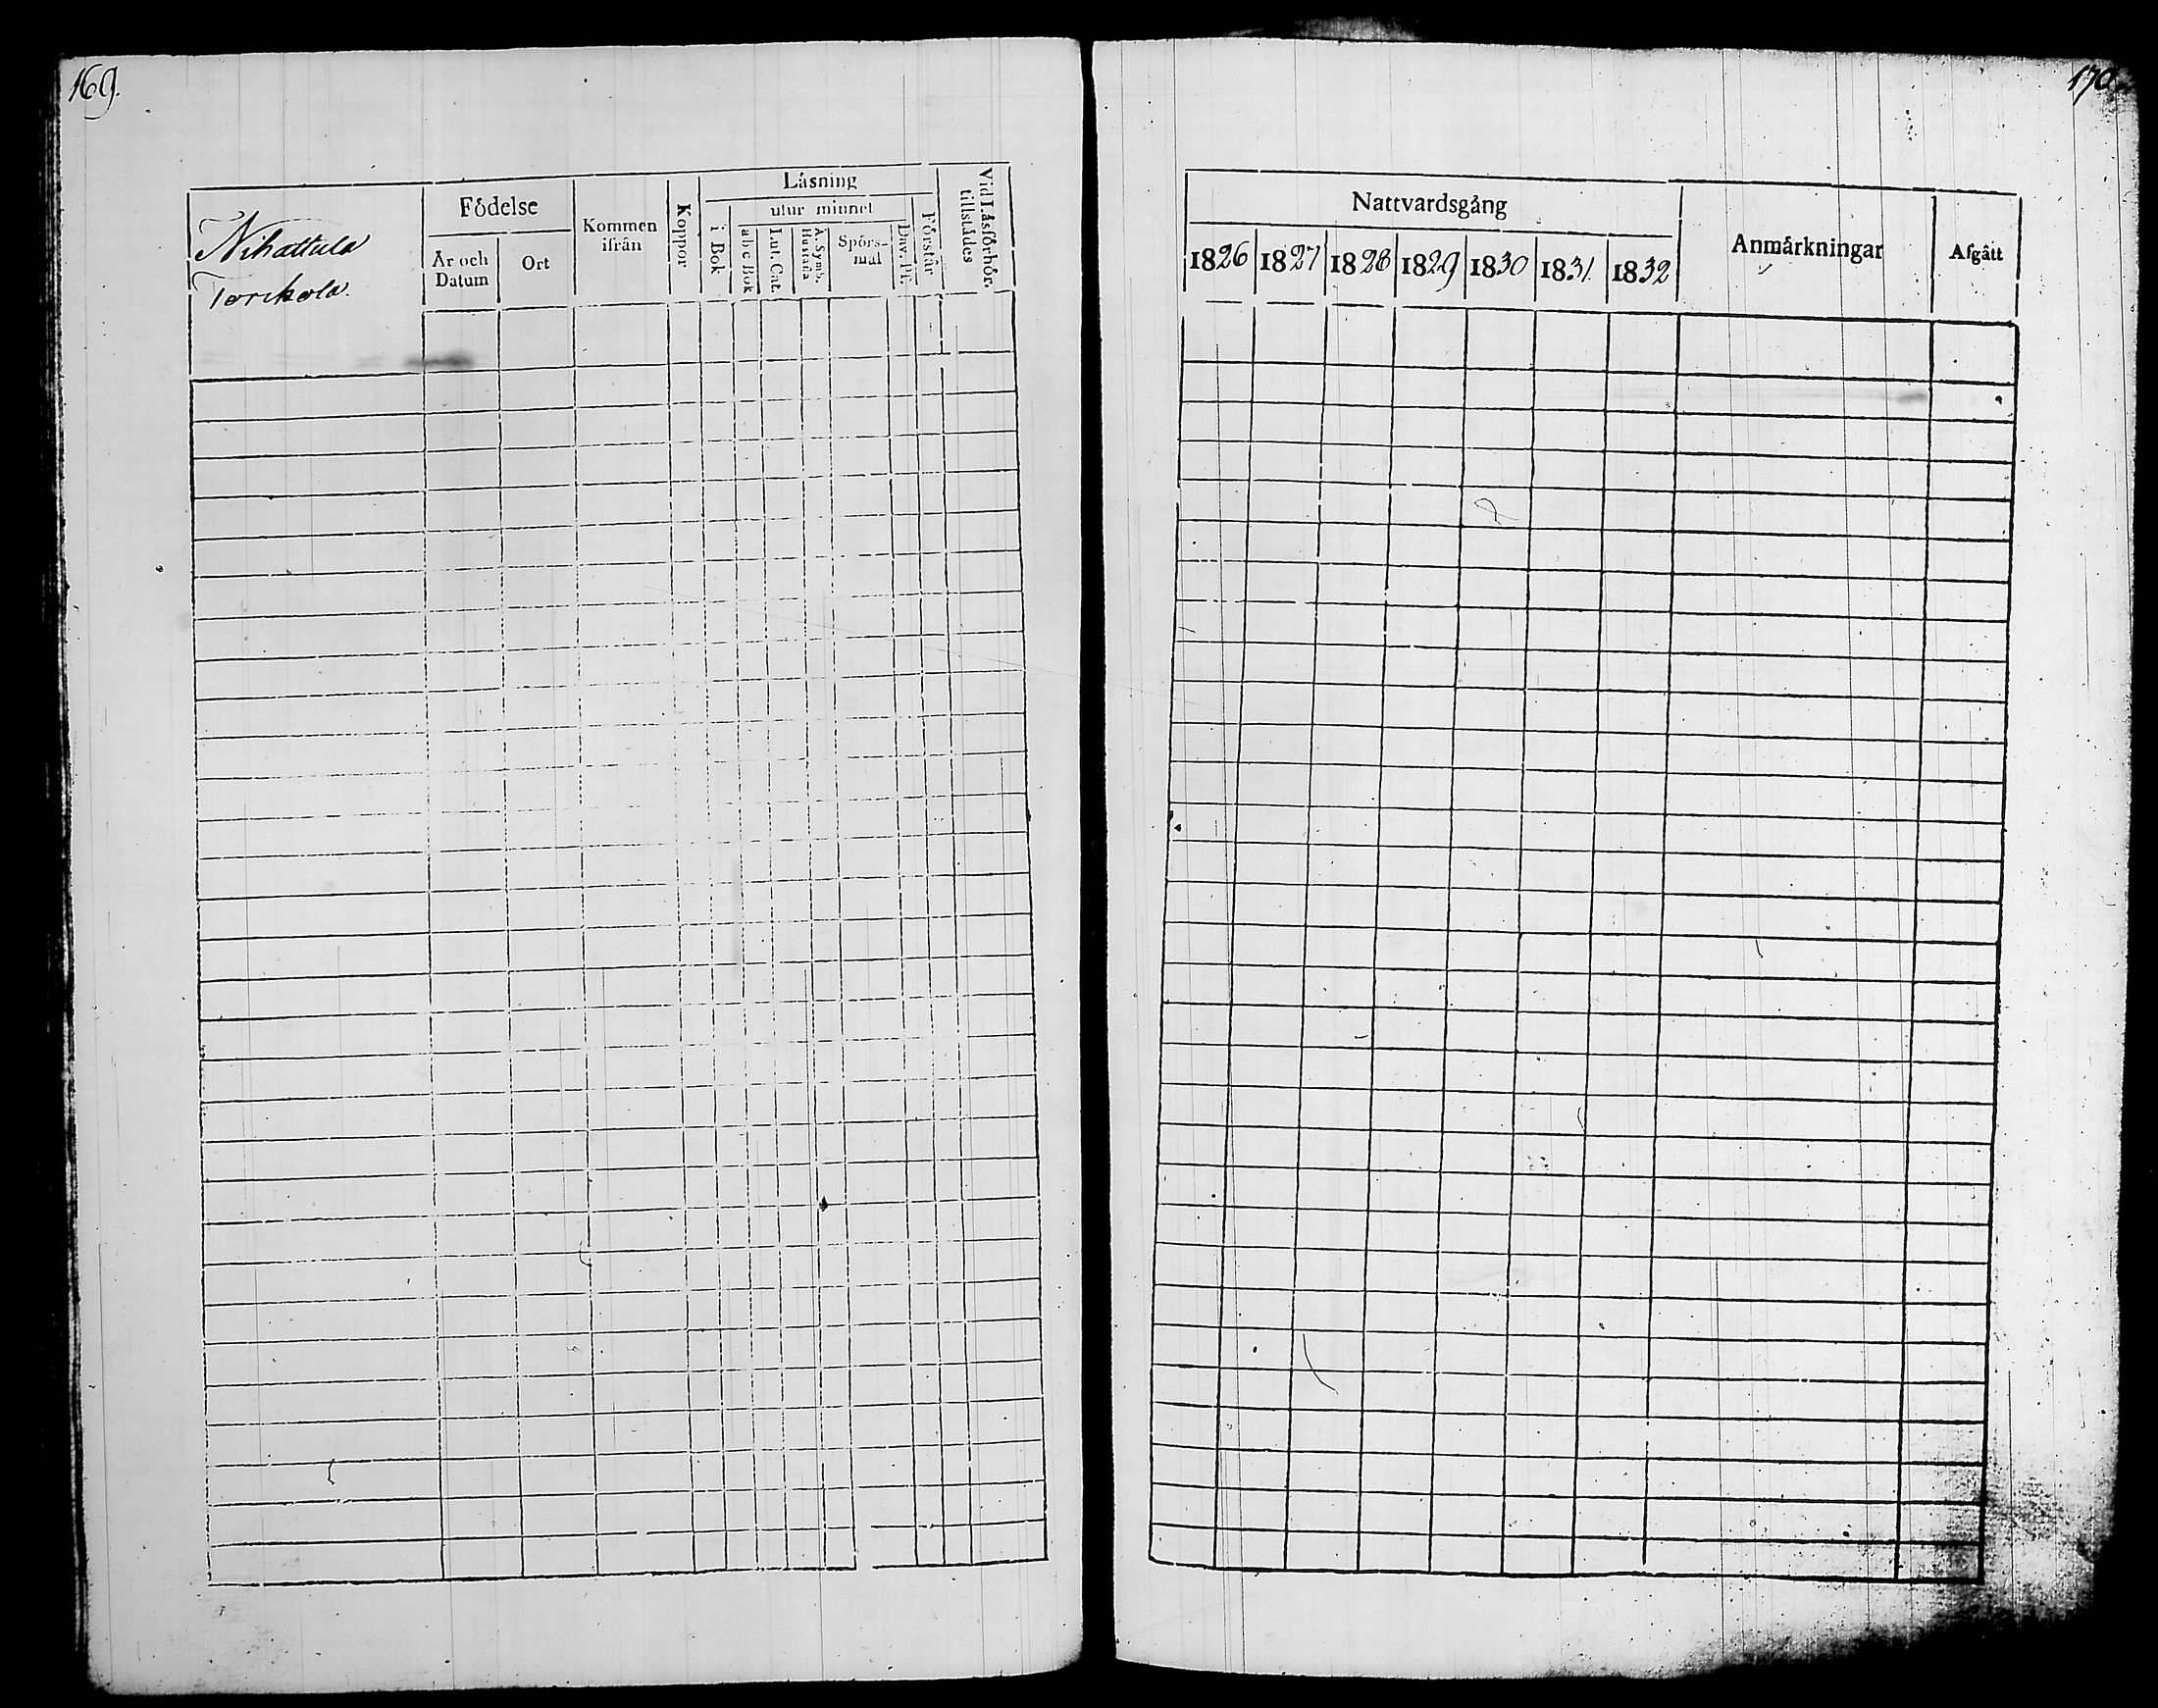 169.
170
Nihattula
Torikola.
Födelse
År och Datum
Ort
Kommen ifrån
Koppor
Läsning
i Bok
utur minnet
abc Bok
Lut. Cat.
A. Symb. Hustafla
Spörsmål
Dav. Ps.
Förstår
Vid Läsförhör tillstädes
Nattvardsgång
1826 1827 1828 1829 1830 1831. 1832
Anmärkningar
Afgått